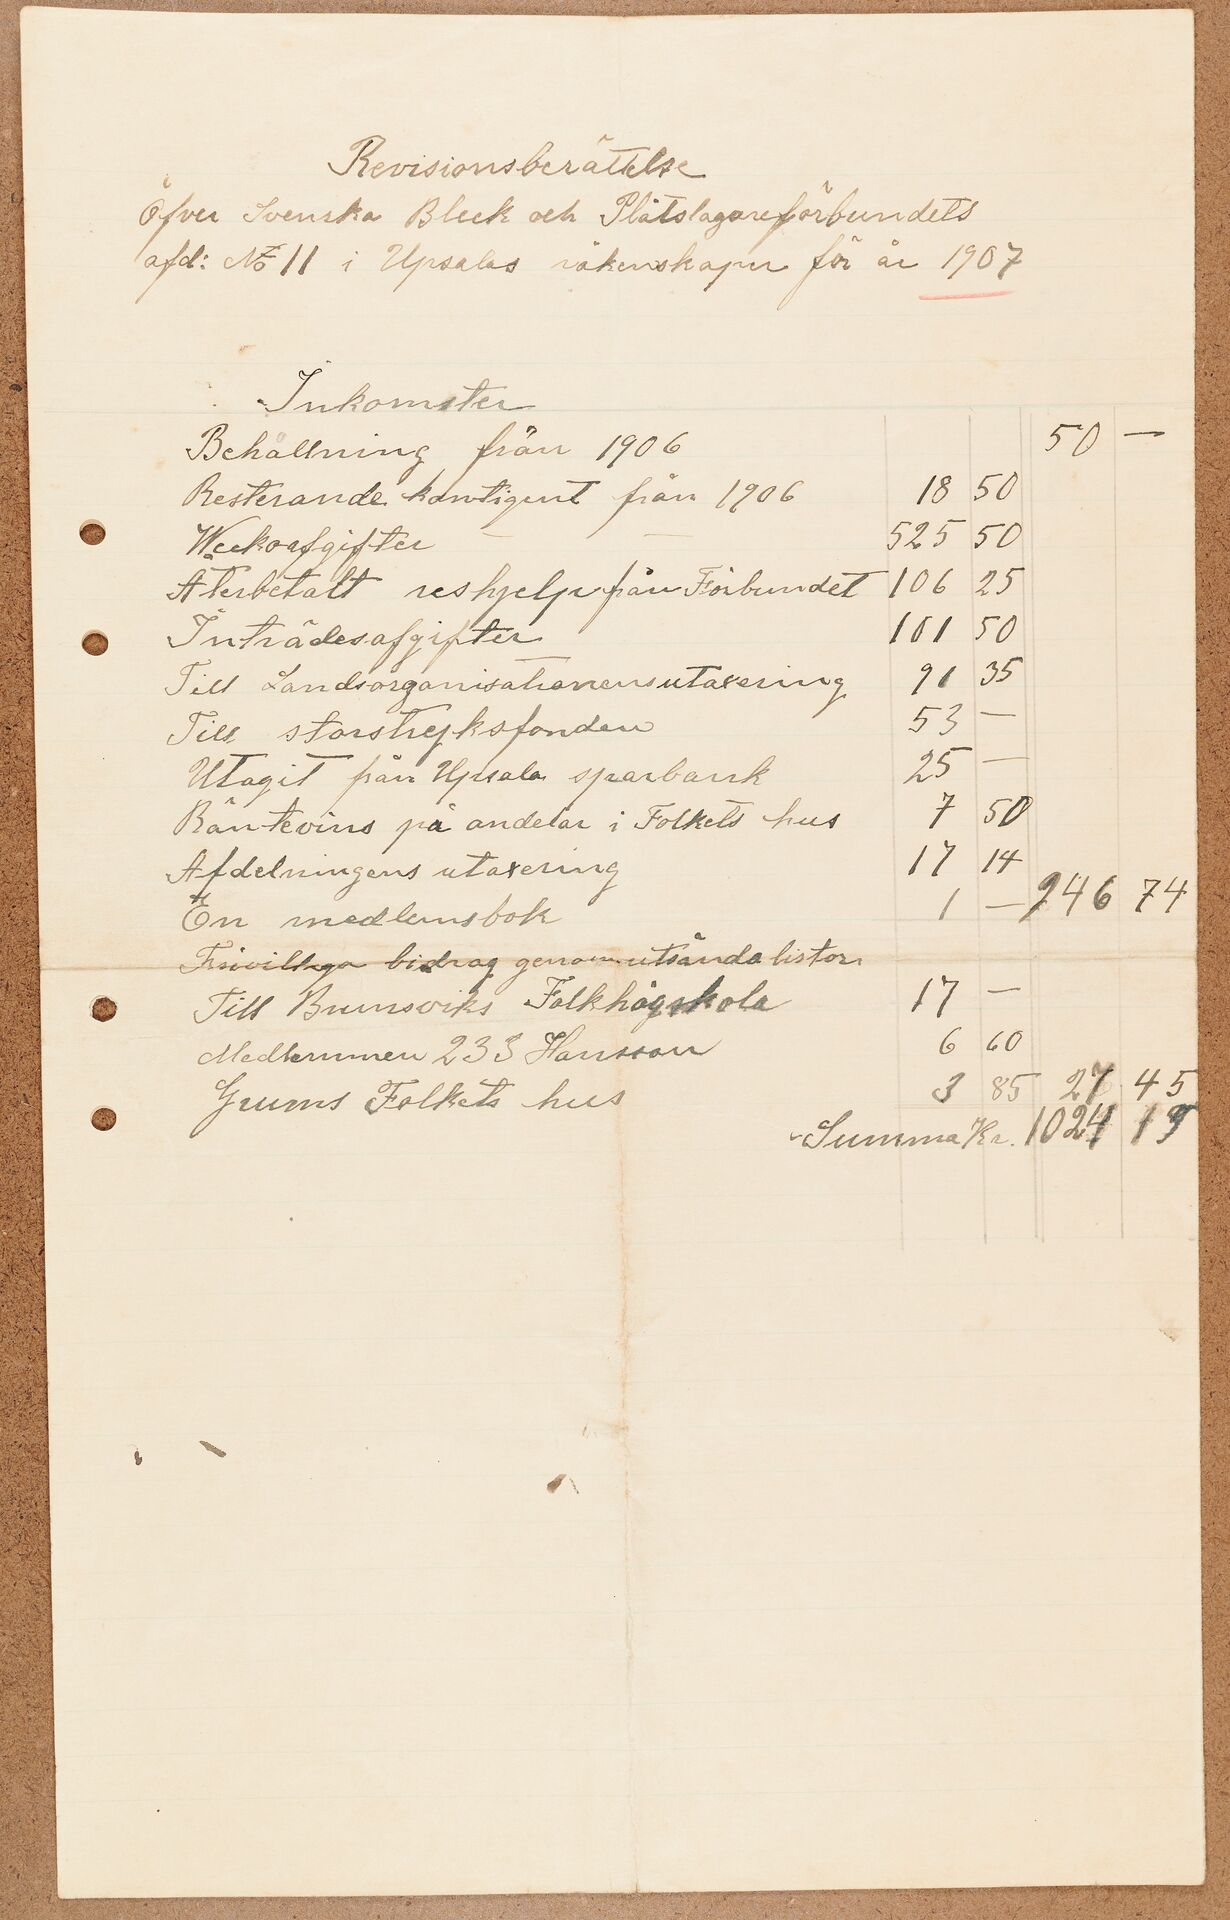 Revisionsberättelse
Öfver Svenska Bleck och Plåtslagareförbundets
afd: No 11 i Upsalas räkenskaper för år 1907
Inkomster
Behållning från 1906 50 —
Resterande kontigent från 1906 18 50
Weckoafgifter — — 525 50
Återbetalt reshjelp från Förbundet 106 25
Inträdesafgifter 101 50
Till Landsorganisationens utaxering 91 35
Till storstrejksfonden 53 —
Utagit från Upsala sparbank 25 —
Räntevins på andelar i Folkets hus 7 50
Afdelningens utaxering 17 14
En medlemsbok 1 — 946 74
Frivilliga bidrag genom utsända listor
Till Brunsviks Folkhögskola 17 —
Medlemmen 233 Hansson 6 60
Grums Folkets hus 3 85 27 45
Summa Kr. 1024 19